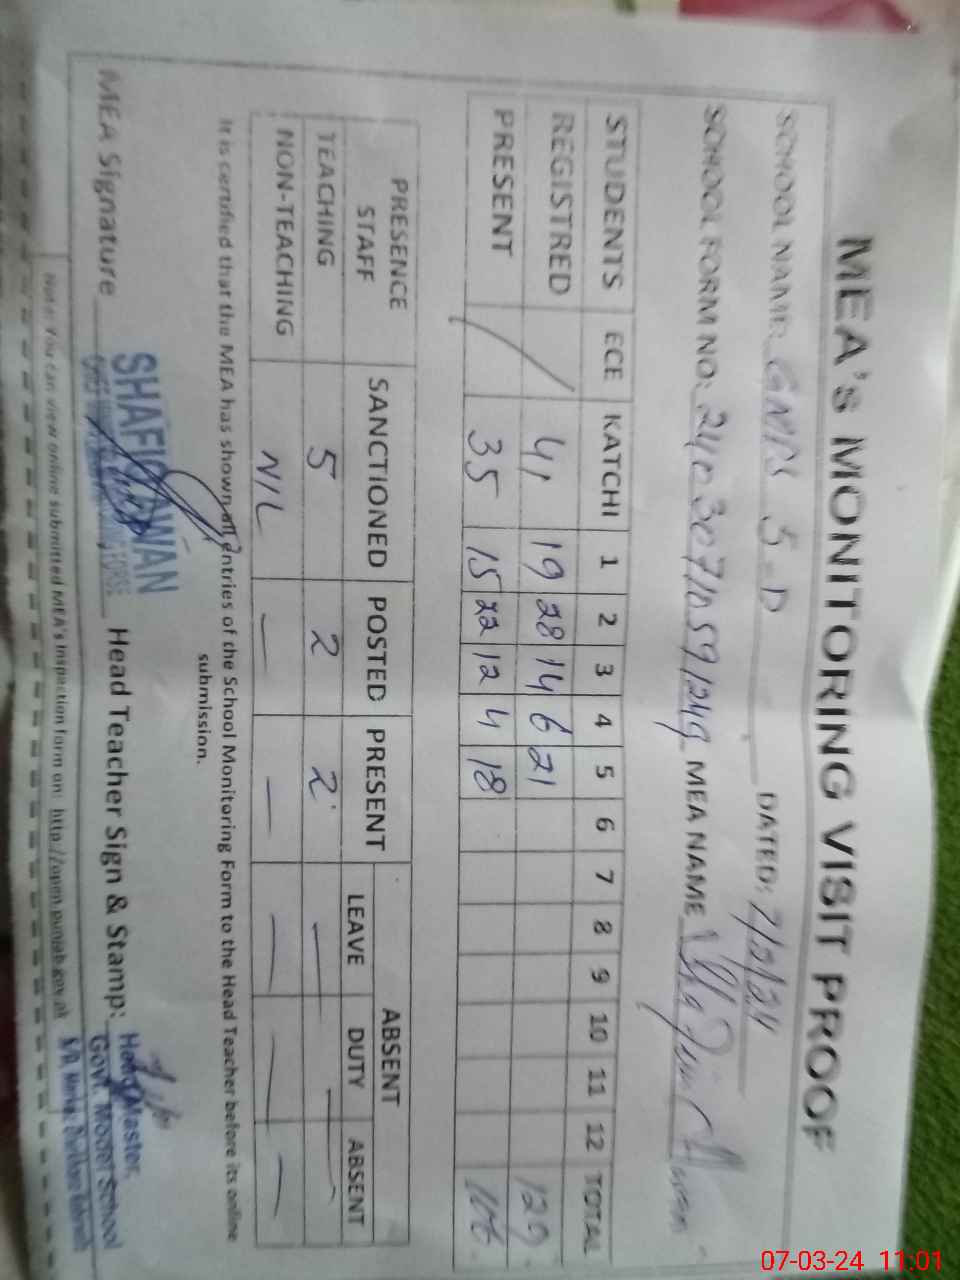 MEA's MONITORING VISIT PROOF
SCHOOL NAME: GMPS 5-D DATED: 7/3/24
SCHOOL FORM NO: MEA NAME
STUDENTS ECE KATCHI 1 2 3 4 5 6 7 8 9 10 11 12 TOTAL
REGISTRED / 41 19 28 14 6 21 129
PRESENT 35 15 22 12 4 18 106
PRESENCE STAFF SANCTIONED POSTED PRESENT ABSENT
LEAVE DUTY ABSENT
TEACHING 5 2 2 — — —
NON-TEACHING NIL — — — — —
It is certified that the MEA has shown all entries of the School Monitoring Form to the Head Teacher before its online
submission.
MEA Signature Head Teacher Sign & Stamp:
SHAFIQ AWAN
Head Master,
Govt. Model School
Note: You can view online submitted MEA's Inspection form on: http://open.punjab.gov.pk
07-03-24 11:01